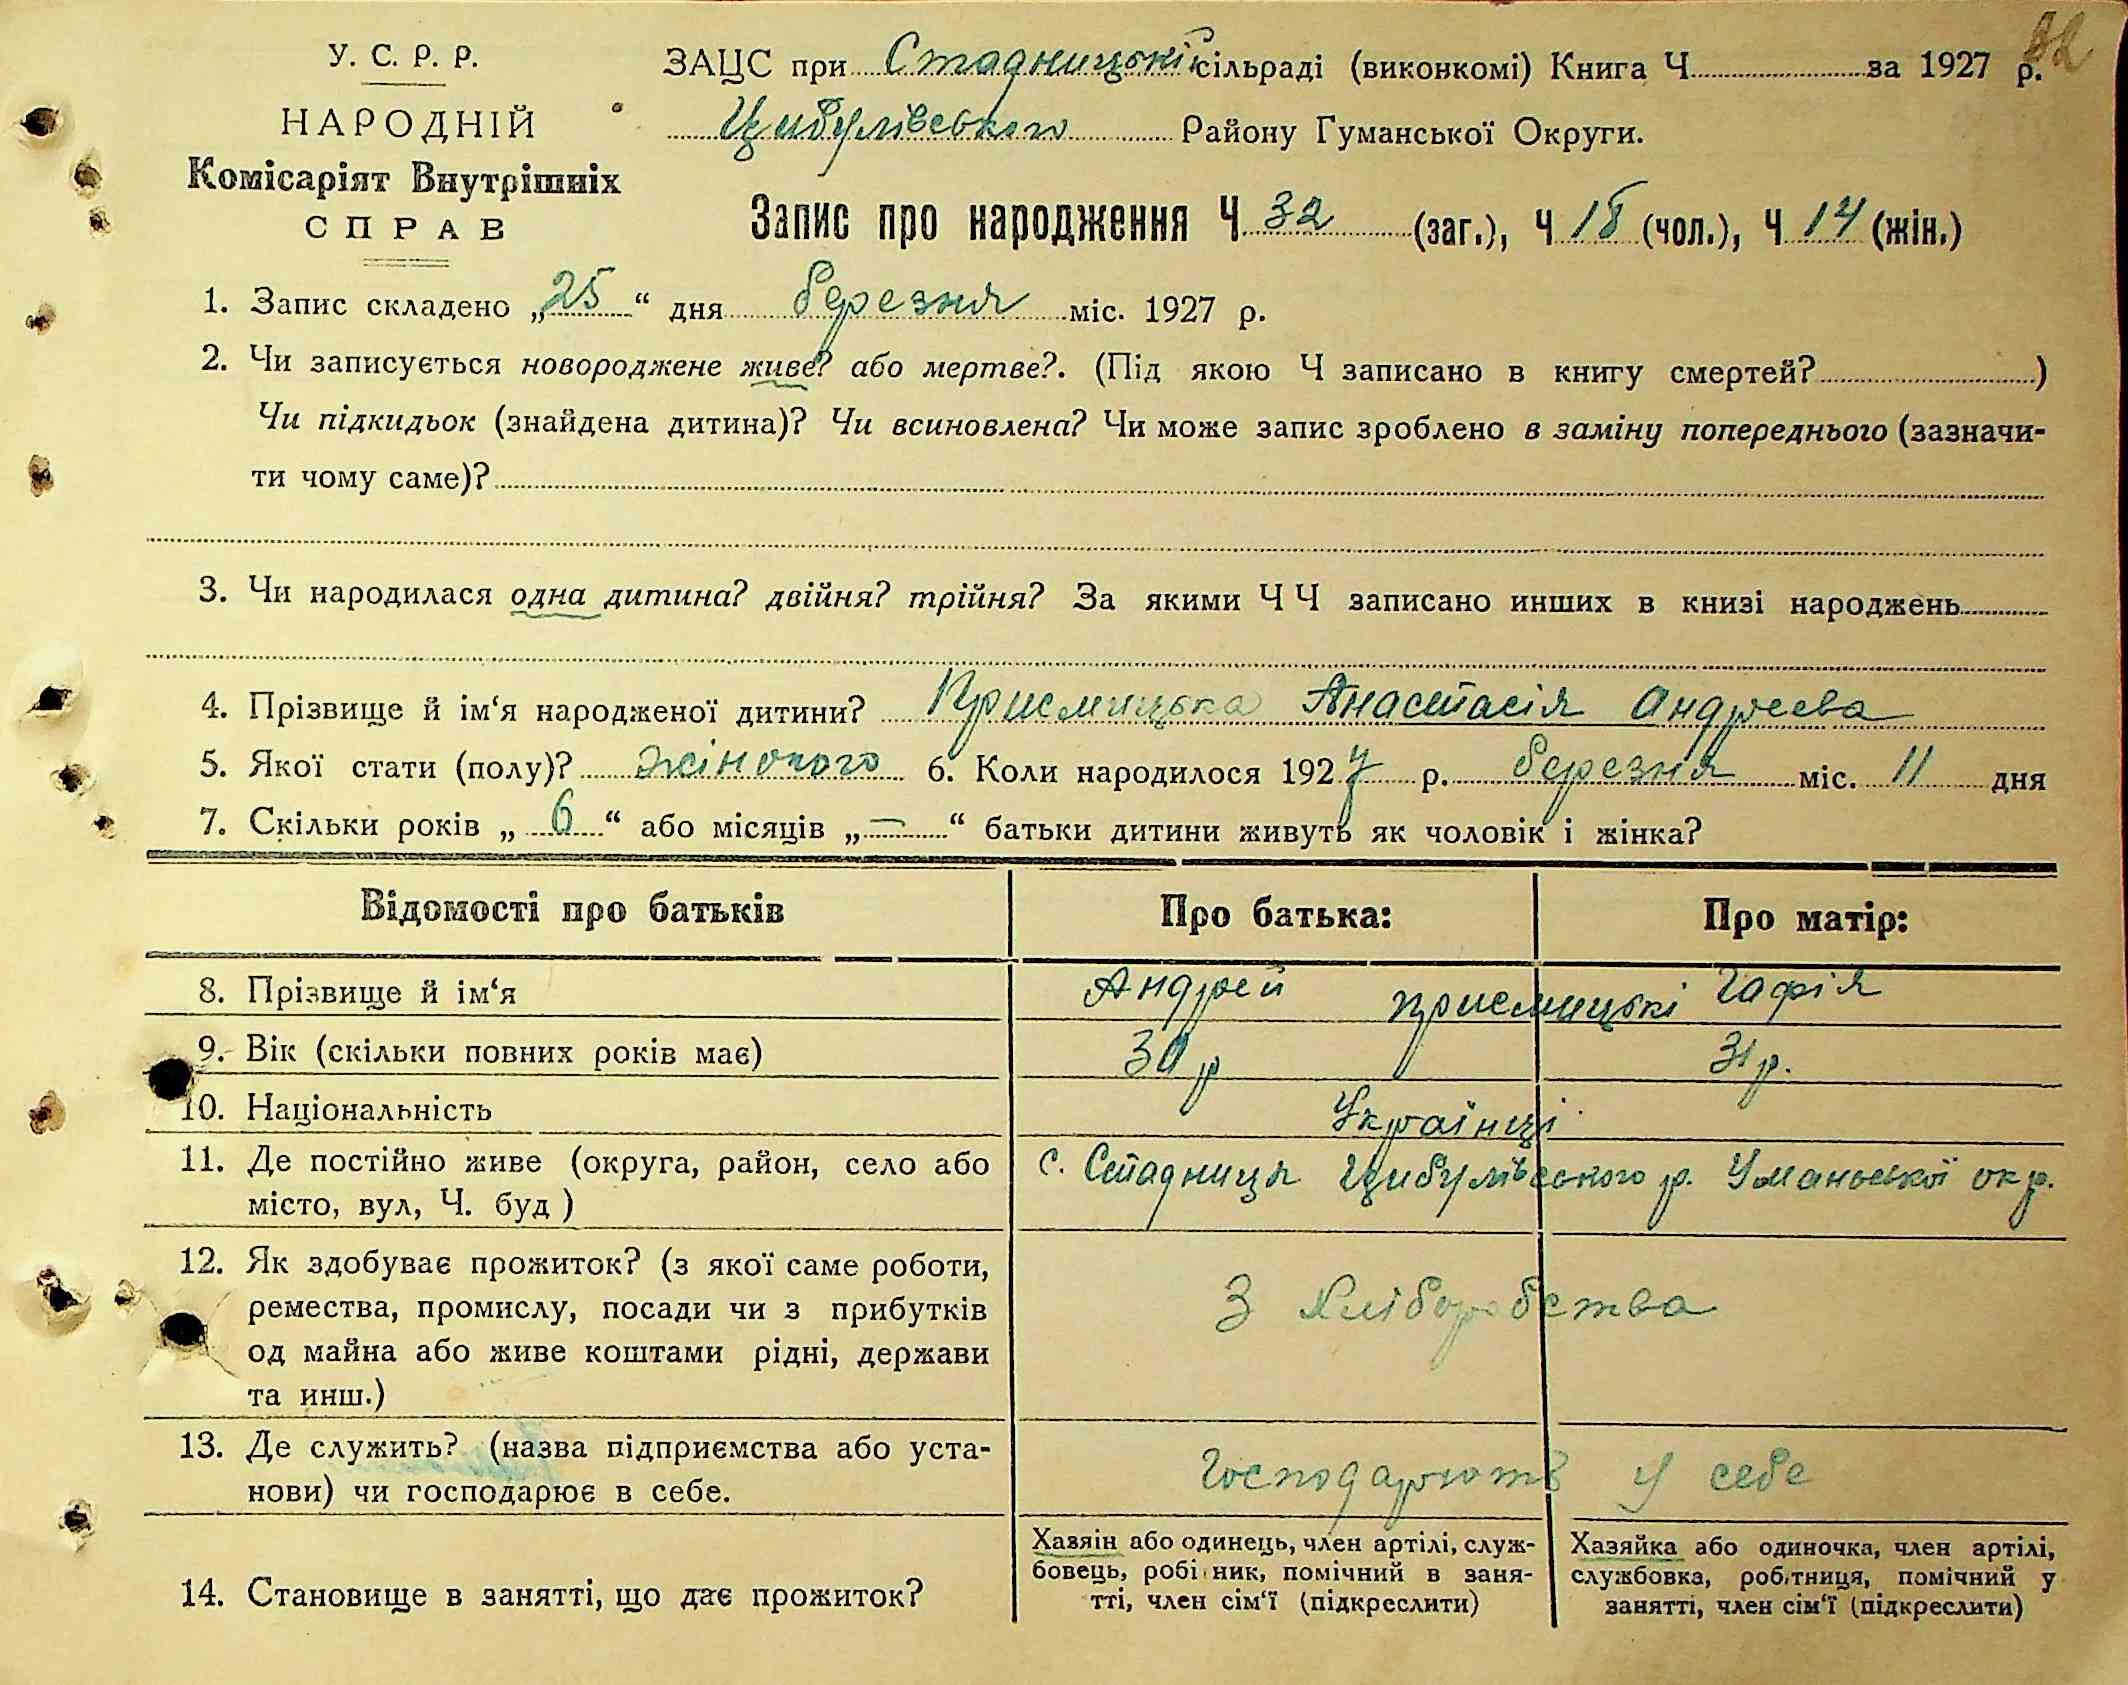 82
У. С. Р. Р.
НАРОДНІЙ
Комісаріят Внутрішніх
СПРАВ
ЗАЦС при Стадницькій сільраді (виконкомі) Книга Ч за 1927 р.
Цибулівського Району Гуманської Округи.
Запис про народження Ч 32 (заг.), Ч 18 (чол.), Ч 14 (жін.)
1. Запис складено „25“ дня березня міс. 1927 р.
2. Чи записується новороджене живе? або мертве?. (Під якою Ч записано в книгу смертей? )
Чи підкидьок (знайдена дитина)? Чи всиновлена? Чи може запис зроблено в заміну попереднього (зазначи-
ти чому саме)?
3. Чи народилася одна дитина? двійня? трійня? За якими ЧЧ записано инших в книзі народжень
4. Прізвище й ім‘я народженої дитини? Приємицька Анастасія Андреева
5. Якої стати (полу)? жіночого 6. Коли народилося 1927 р. березня міс. 11 дня
7. Скільки років „6“ або місяців „—“ батьки дитини живуть як чоловік і жінка?
Відомості про батьків Про батька: Про матір:
8. Прізвище й ім‘я Андрей приемицькі Гафія
9. Вік (скільки повних років має) 30 р 31 р.
10. Національність Українці
11. Де постійно живе (округа, район, село або с. Стадниця Цибулівського р. Уманської окр.
місто, вул, Ч. буд )
12. Як здобуває прожиток? (з якої саме роботи,
ремества, промислу, посади чи з прибутків З хліборобства
од майна або живе коштами рідні, держави
та инш.)
13. Де служить? (назва підприємства або уста-
нови) чи господарює в себе. Господарюють у себе
14. Становище в занятті, що дає прожиток?
Хазяін або одинець, член артілі, служ-
бовець, робітник, помічний в заня-
тті, член сім‘ї (підкреслити)
Хазяйка або одиночка, член артілі,
службовка, робітниця, помічний у
занятті, член сім‘ї (підкреслити)